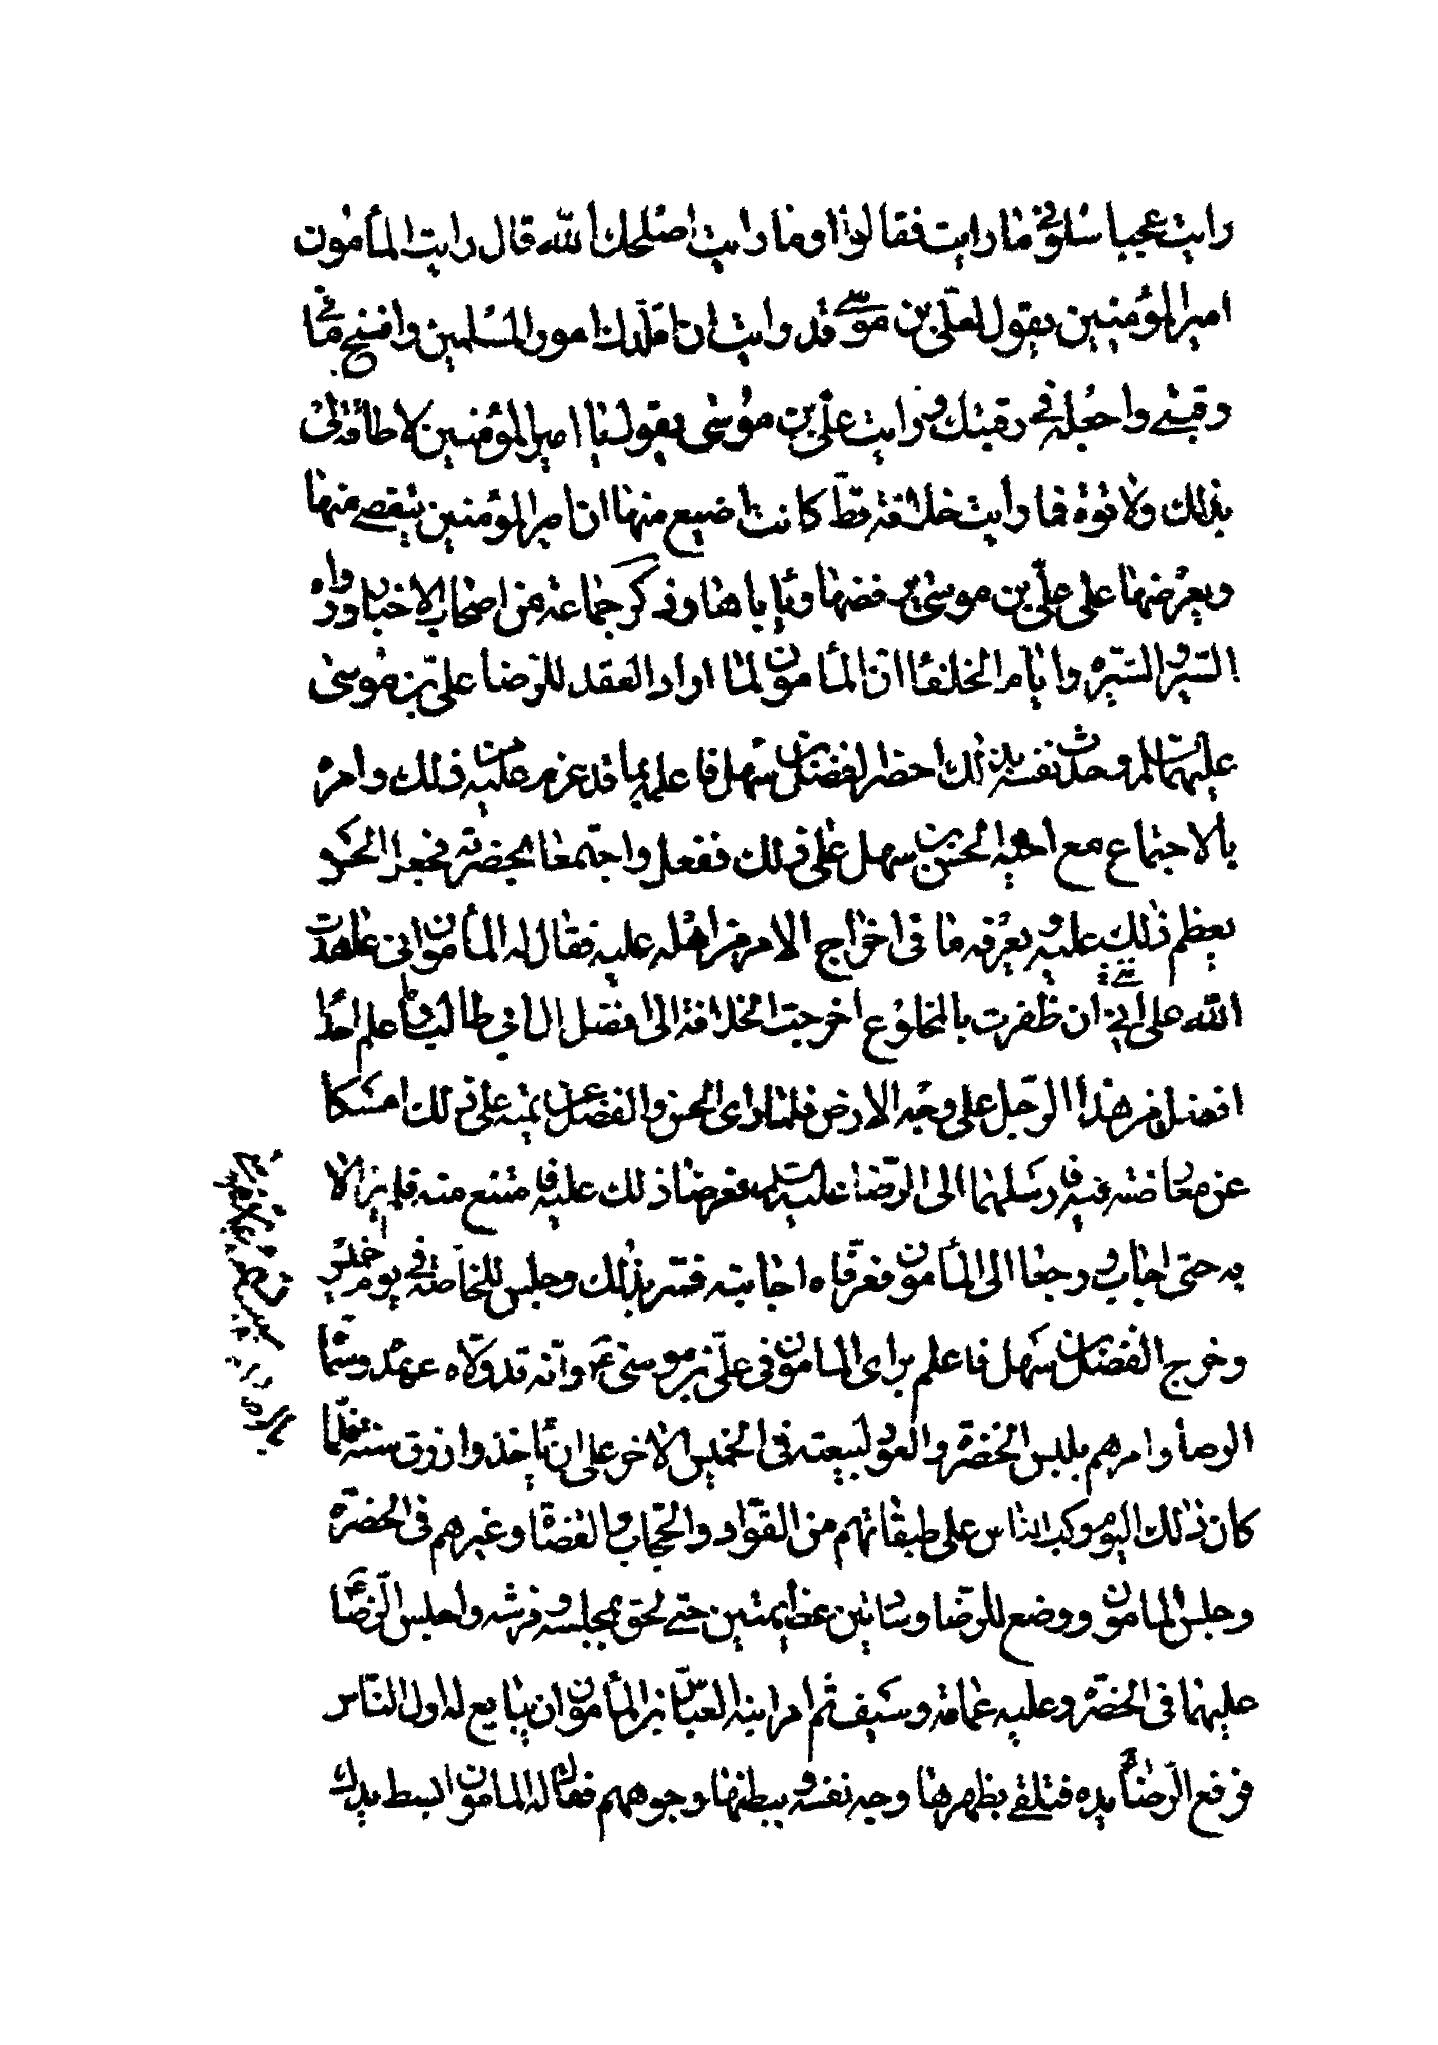 رايت عجبا سلوني ما رايت فقالوا وما رايت اصلحك الله قال رايت المأمون
امير المؤمنين يقول لعلي بن موسى قد رايت ان اقلدك امور المسلمين وافسخ ما في
رقبتي واجعله في رقبتك ورايت علي بن موسى يقول يا امير المؤمنين لا طاقة لي
بذلك ولا قوة فما رايت خلافة قط كانت اضيع منها ان امير المؤمنين يتفصى منها
ويعرضها على علي بن موسى يرفضها ويأباها وذكر جماعة من اصحاب الاخبار ورواه
السير السيرة وايام الخلفا ان المأمون لما اراد العقد للرضا علي بن موسى
عليهما السلم وحدث نفسه بذلك احضر الفضل بن سهل فاعلمه بما قد عزم عليه من ذلك وامره
بالاجتماع مع اخيه الحسن بن سهل على ذلك ففعل واجتمعا بحضرته فجعل الحسن
يعظم ذلك عليه ويعرفه ما في اخراج الامر من اهله عليه فقال له المأمون اني عاهدت
الله على انني ان ظفرت بالمخلوع اخرجت الخلافة الى افضل ال ابي طالب وما اعلم احدا
افضل من هذا الرجل على وجه الارض فلما راى الحسن والفضل عزيمته على ذلك امسكا
عن معارضته فيه فارسلهما الى الرضا عليه السلم فعرضا ذلك عليه فامتنع منه فلم يزالا
به حتى اجاب ورجعا الى المأمون فعرفاه اجابته فسر بذلك وجلس للخاصة في يوم خميس
وخرج الفضل بن سهل فاعلم براى المامون في علي بن موسى ع وانه قد ولاه عهده وسماه
الرضا وامرهم بلبس الخضرة والعود لبيعته في الخميس الاخر على ان ياخذوا رزق سنة فلما
كان ذلك اليوم ركب الناس على طبقاتهم من القواد والحجاب والقضاة وغيرهم في الخضرة
وجلس المامون ووضع للرضا وسادتين عظيمتين حتى لحق بمجلسه وفرشه واجلس الرضا ع
عليهما في الخضرة وعليه عمامة وسيف ثم امر ابنه العباس بن المأمون ان يبايع له اول الناس
فرفع الرضا ع يده فتلقى بظهرها وجه نفسه وببطنها وجوههم فقال له المامون ابسط يدك